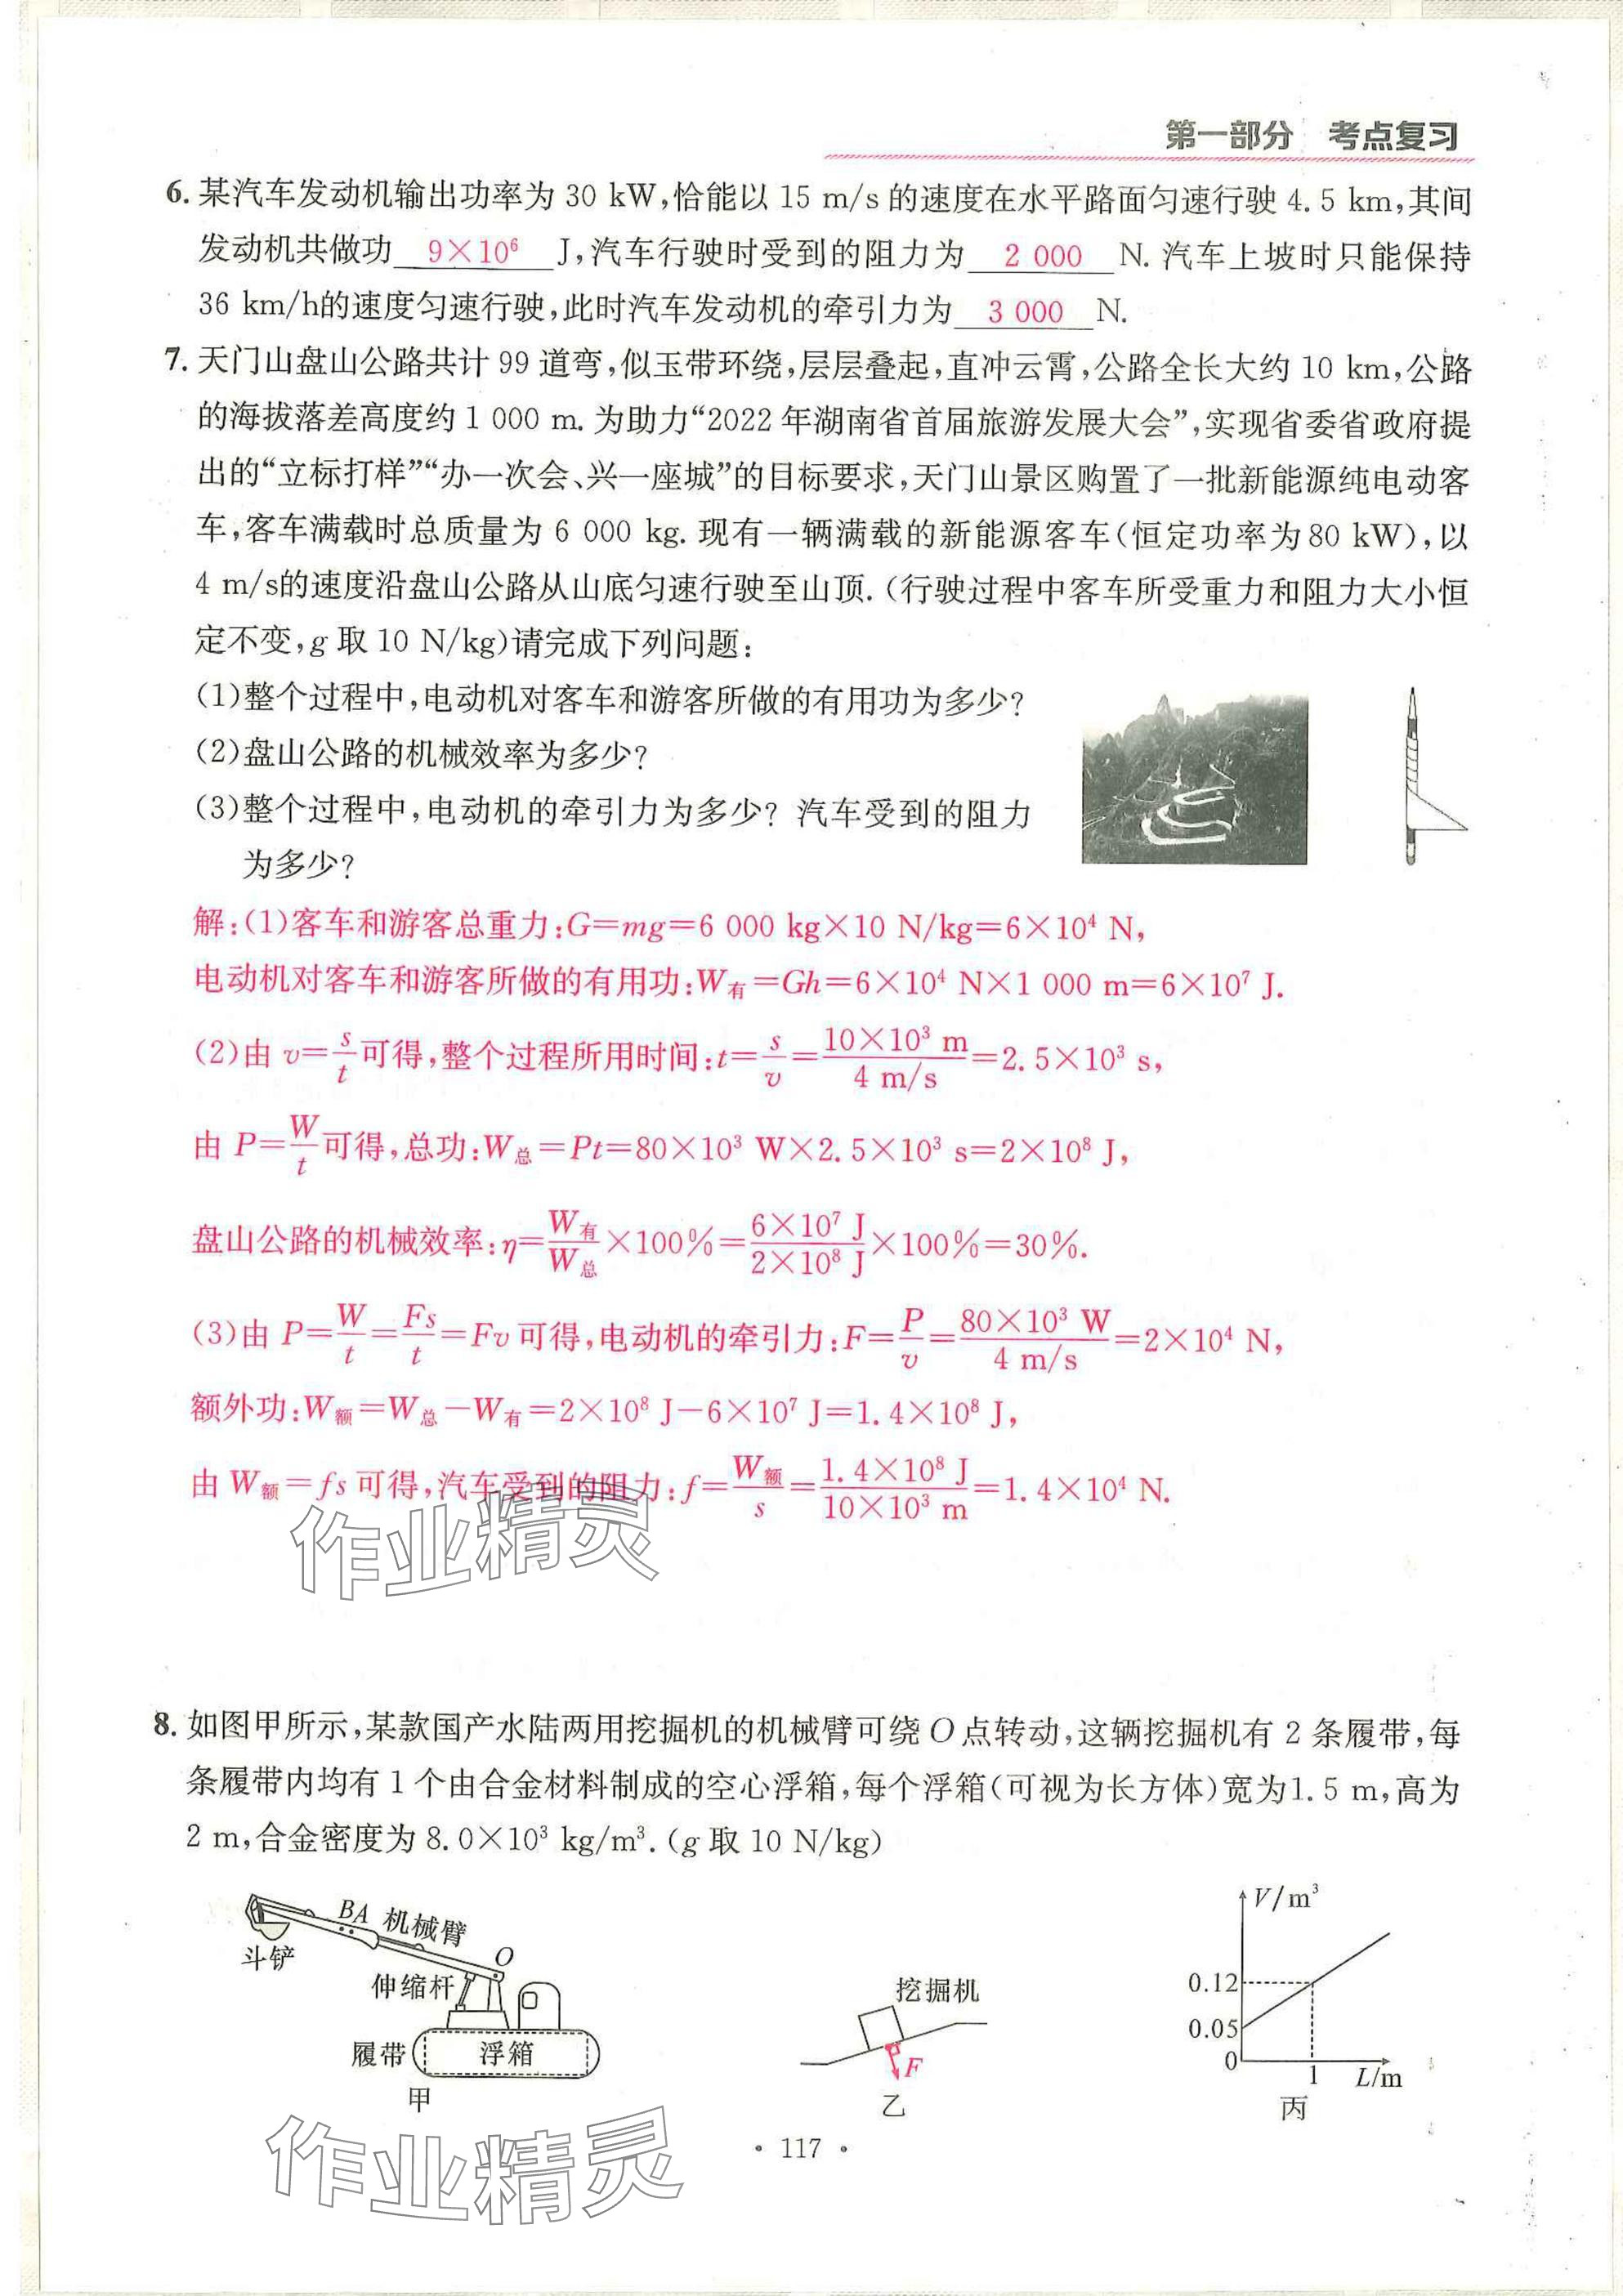 第一部分 考点复习
6. 某汽车发动机输出功率为 30 kW,恰能以 15 m/s 的速度在水平路面匀速行驶 4.5 km,其间
发动机共做功 9×10⁶ J,汽车行驶时受到的阻力为 2 000 N. 汽车上坡时只能保持
36 km/h的速度匀速行驶,此时汽车发动机的牵引力为 3 000 N.
7. 天门山盘山公路共计 99 道弯,似玉带环绕,层层叠起,直冲云霄,公路全长大约 10 km,公路
的海拔落差高度约 1 000 m. 为助力“2022 年湖南省首届旅游发展大会”,实现省委省政府提
出的“立标打样”“办一次会、兴一座城”的目标要求,天门山景区购置了一批新能源纯电动客
车,客车满载时总质量为 6 000 kg. 现有一辆满载的新能源客车(恒定功率为80 kW),以
4 m/s的速度沿盘山公路从山底匀速行驶至山顶. (行驶过程中客车所受重力和阻力大小恒
定不变,g 取 10 N/kg)请完成下列问题:
(1)整个过程中,电动机对客车和游客所做的有用功为多少?
(2)盘山公路的机械效率为多少?
(3)整个过程中,电动机的牵引力为多少? 汽车受到的阻力
为多少?
解:(1)客车和游客总重力:G=mg=6 000 kg×10 N/kg=6×10⁴ N,
电动机对客车和游客所做的有用功:W有=Gh=6×10⁴ N×1 000 m=6×10⁷ J.
(2)由 v=s/t可得,整个过程所用时间:t=s/v=10×10³ m/4 m/s=2.5×10³ s,
由 P=W/t可得,总功:W总=Pt=80×10³ W×2.5×10³ s=2×10⁸ J,
盘山公路的机械效率:η=W有/W总×100%=6×10⁷ J/2×10⁸ J×100%=30%.
(3)由 P=W/t=Fs/t=Fv 可得,电动机的牵引力:F=P/v=80×10³ W/4 m/s=2×10⁴ N,
额外功:W额=W总-W有=2×10⁸ J-6×10⁷ J=1.4×10⁸ J,
由 W额=fs 可得,汽车受到的阻力:f=W额/s=1.4×10⁸ J/10×10³ m=1.4×10⁴ N.
作业精灵
8. 如图甲所示,某款国产水陆两用挖掘机的机械臂可绕 O 点转动,这辆挖掘机有 2 条履带,每
条履带内均有 1 个由合金材料制成的空心浮箱,每个浮箱(可视为长方体)宽为1.5 m,高为
2 m,合金密度为 8.0×10³ kg/m³. (g 取 10 N/kg)
BA 机械臂
斗铲
O
伸缩杆
履带
浮箱
甲
挖掘机
F
乙
V/m³
0.12
0.05
0
1
L/m
丙
• 117 •
作业精灵